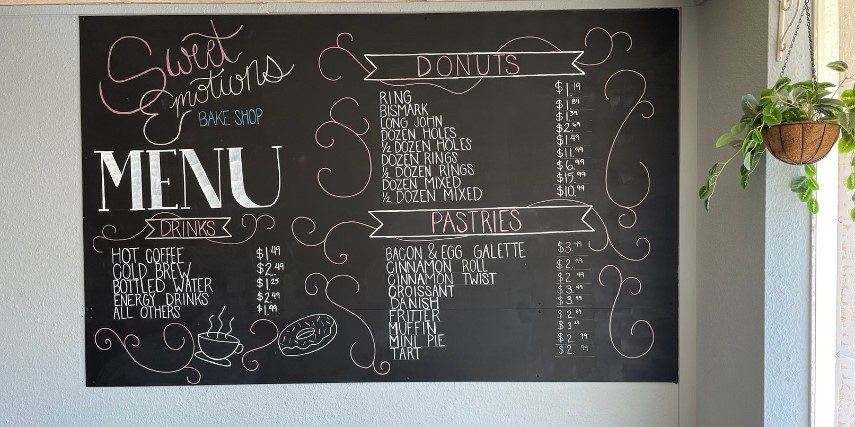 Sweet
Emotions
BAKE SHOP
MENU
DRINKS
HOT COFFEE $1.49
COLD BREW $2.49
BOTTLED WATER $1.25
ENERGY DRINKS $2.49
ALL OTHERS $1.99
DONUTS
RING $1.19
BISMARK $1.89
LONG JOHN $1.39
DOZEN HOLES $2.69
½ DOZEN HOLES $1.49
DOZEN RINGS $11.99
½ DOZEN RINGS $6.99
DOZEN MIXED $15.99
½ DOZEN MIXED $10.99
PASTRIES
BACON & EGG GALETTE
CINNAMON ROLL
CINNAMON TWIST
CROISSANT
DANISH
FRITTER
MUFFIN
MINI PIE
TART